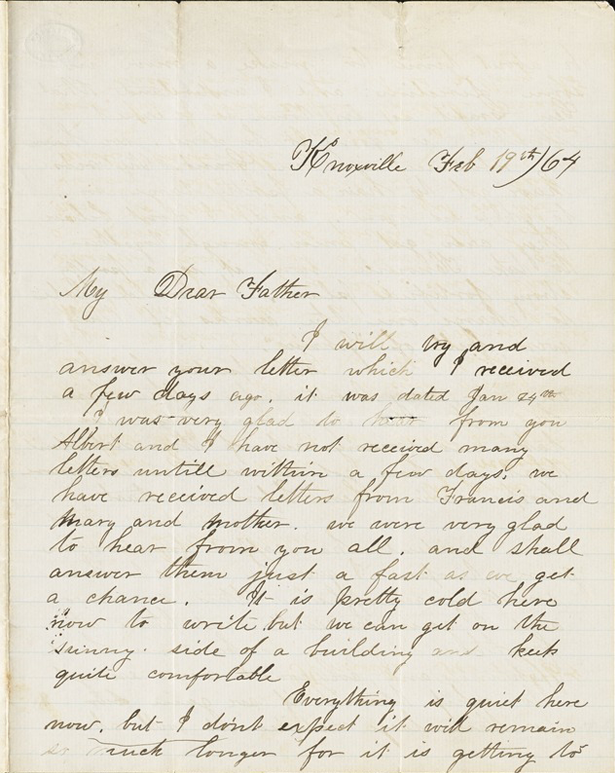 Knoxville Feb 19th/64
My Dear Father
I will try and
answer your letter which I received
a few days ago. it was dated Jan 24th
I was very glad to hear from you
Albert and I have not received many
letters untill within a few days. we
have received letters from Francis and
Mary and Mother. we were very glad
to hear from you all. and shall
answer them just a fast as we get
a chance. It is pretty cold here
now to write. but we can get on the
sunny. side of a building and keek
quite comfortable
Everything is quiet here
now. but I dont expect it will remain
so much longer for it is getting to